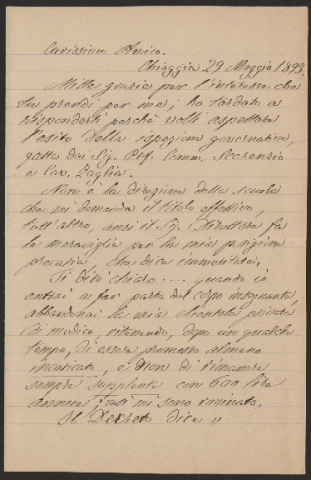 Carissimo Amico.
Chioggia 29 Maggio 1893.
Mille grazie per l'interesse che
tu prendi per me; ho tardato a
risponderti perchè volli aspettare
l'esito della ispezione governativa,
fatta dai Sig. Prof. Comm.
e Cav. Zaglia.
Non è la direzione della scuola
che mi domanda il titolo effettivo,
tutt'altro, anzi il Sig. Direttore fa
la meraviglia per la mia posizione
precaria, che dice immeritata.
Ti dirò chiaro.... quando io
entrai a far parte del corpo insegnante,
abbandonai la mia clientela privata
di medico, ritenendo, dopo un qualche
tempo, di essere promosso almeno
incaricato, e non di rimanere
sempre supplente con 600 lire
annue
Il Decreto dice "